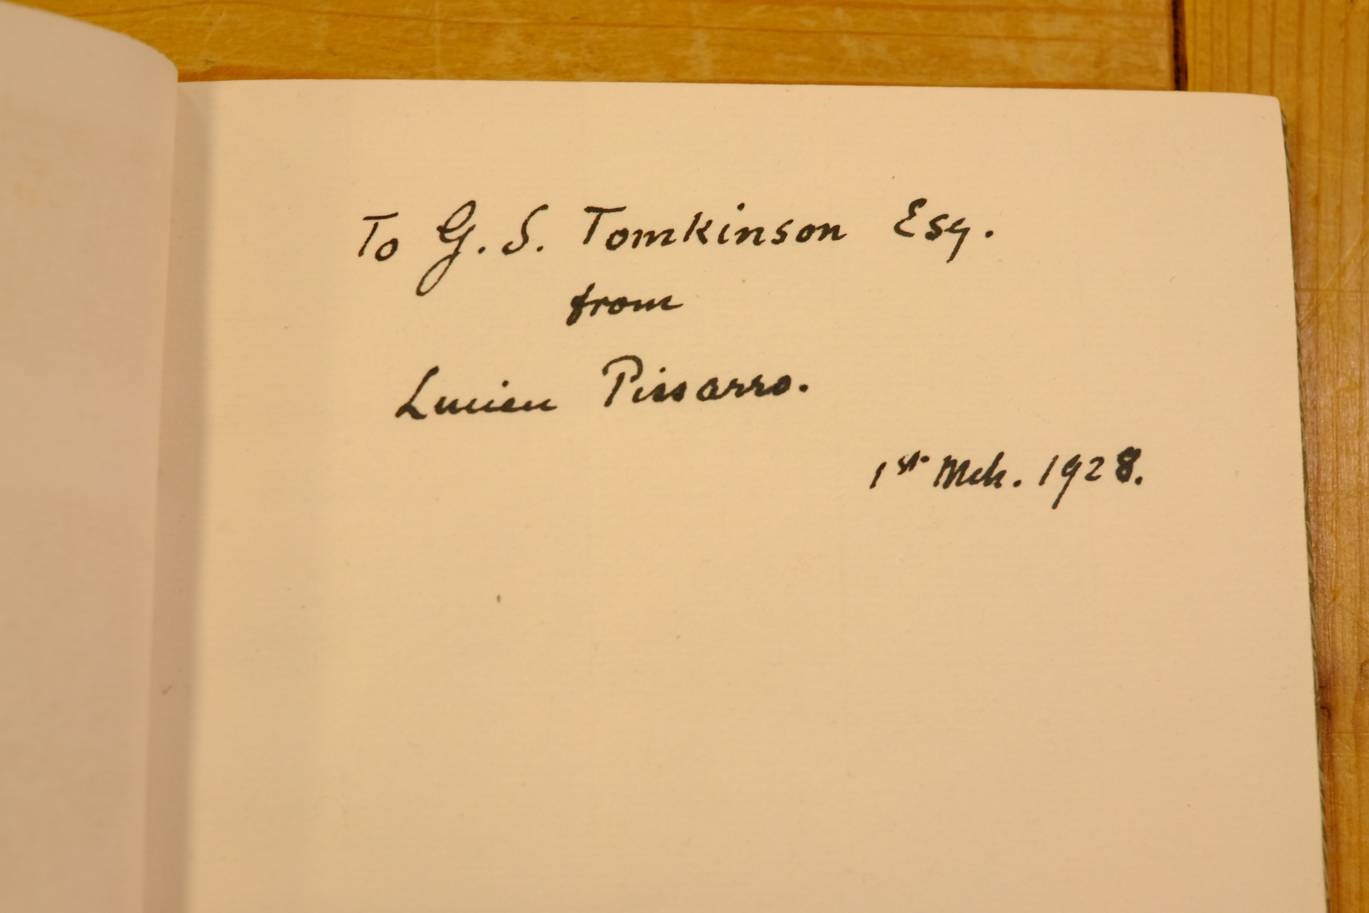 To G. S. Tomkinson Esq.
from
Lucien Pissarro.
1st Mch. 1928.